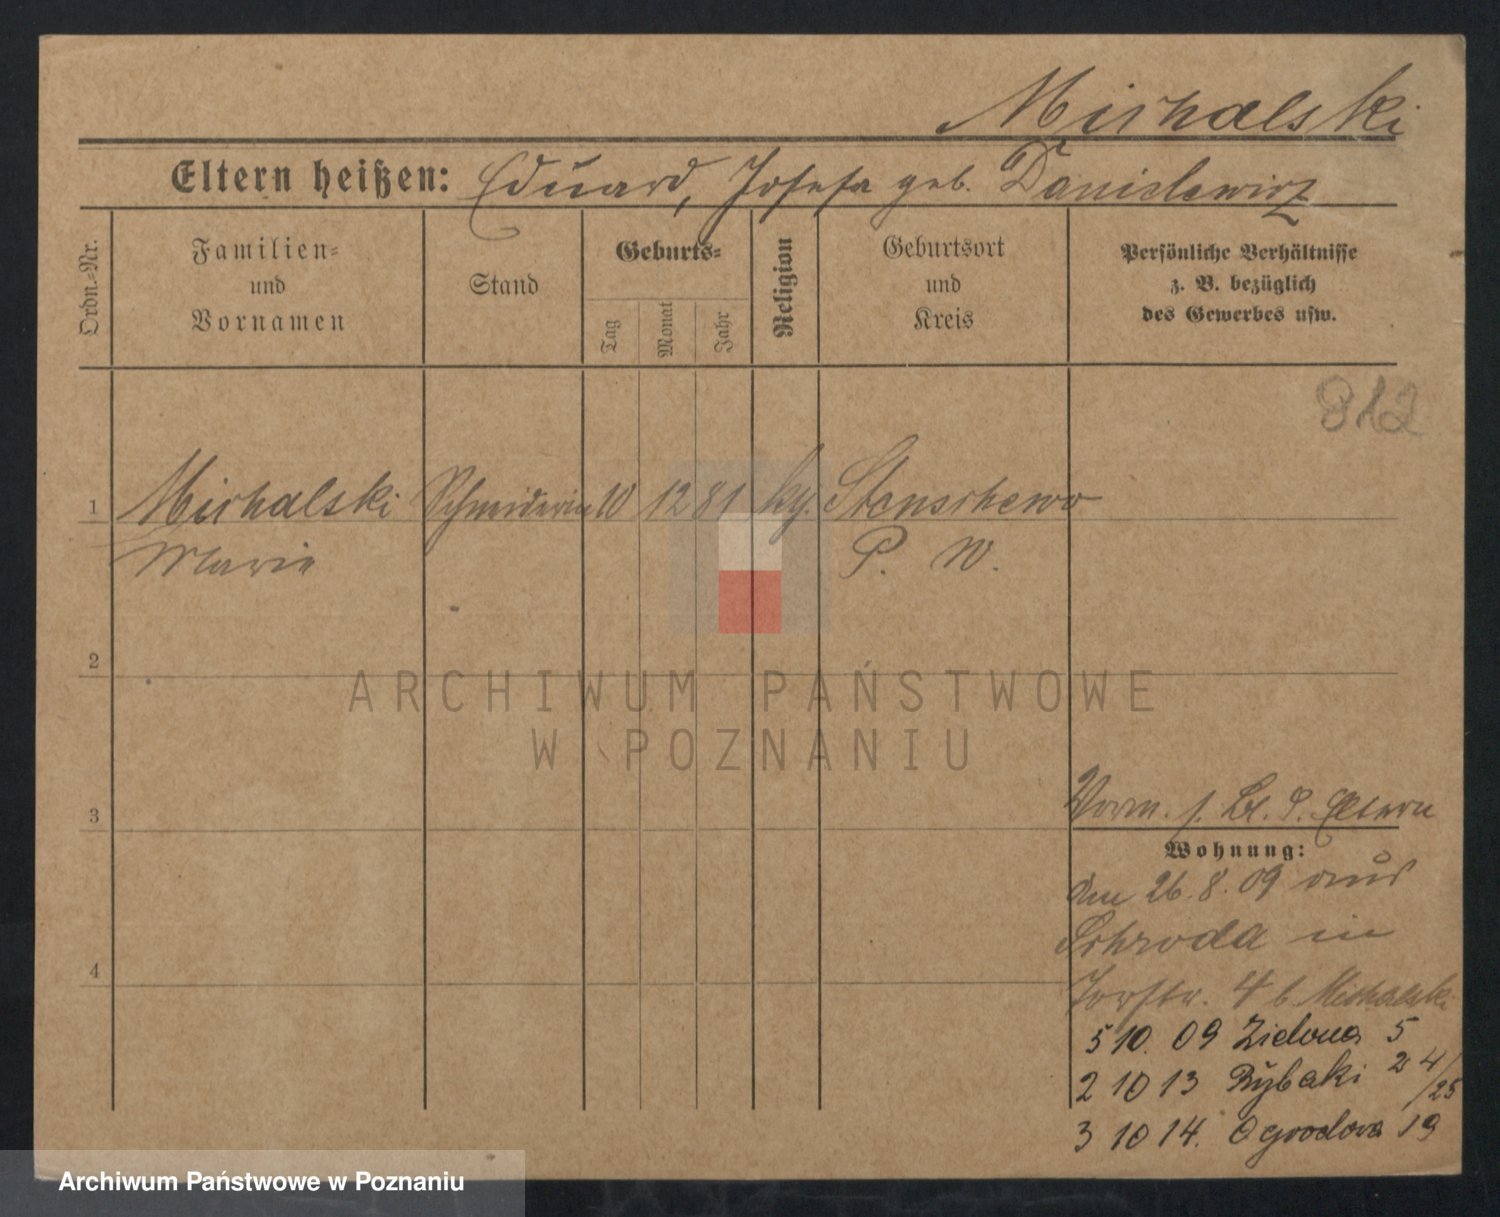 Michalski
Eltern heißen: Eduard, Josefa geb. Danielewicz
Ordn.-Nr.
Familien-
und
Vornamen
Stand
Geburts-
Tag
Monat
Jahr
Religion
Geburtsort
und
Kreis
Persönliche Verhältnisse
z. B. bezüglich
des Gewerbes usw.
312
1 Michalski Schneiderin 10 12 81 kg. Stenschewo
Marie P. W.
2
ARCHIWUM PAŃSTWOWE
W POZNANIU
3
Vorm. s. Bl. d. Eltern
Wohnung:
Am 26.8.09 aus
Schroda in
Torstr. 4 b Michalski
5 10. 09 Zielona 5
2 10 13 Rybaki 24/25
3 10 14. Ogrodowa 19
4
Archiwum Państwowe w Poznaniu